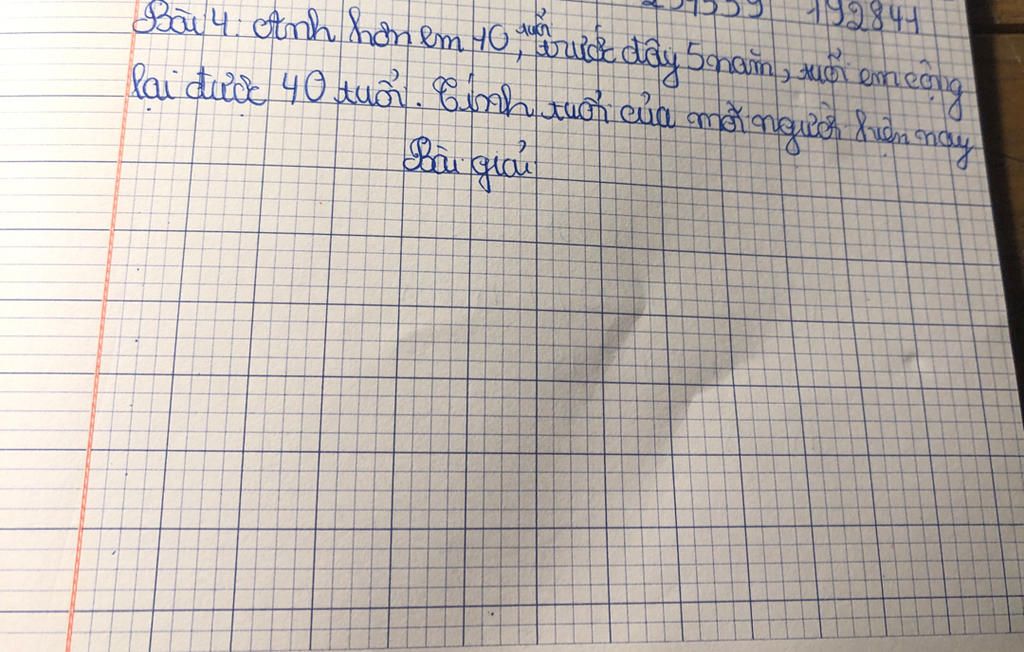 192841
Bài 4: Anh hơn em 10 tuổi, trước đây 5 năm, tuổi em cộng
lại được 40 tuổi. Tính tuổi của mỗi người hiện nay
Bài giải